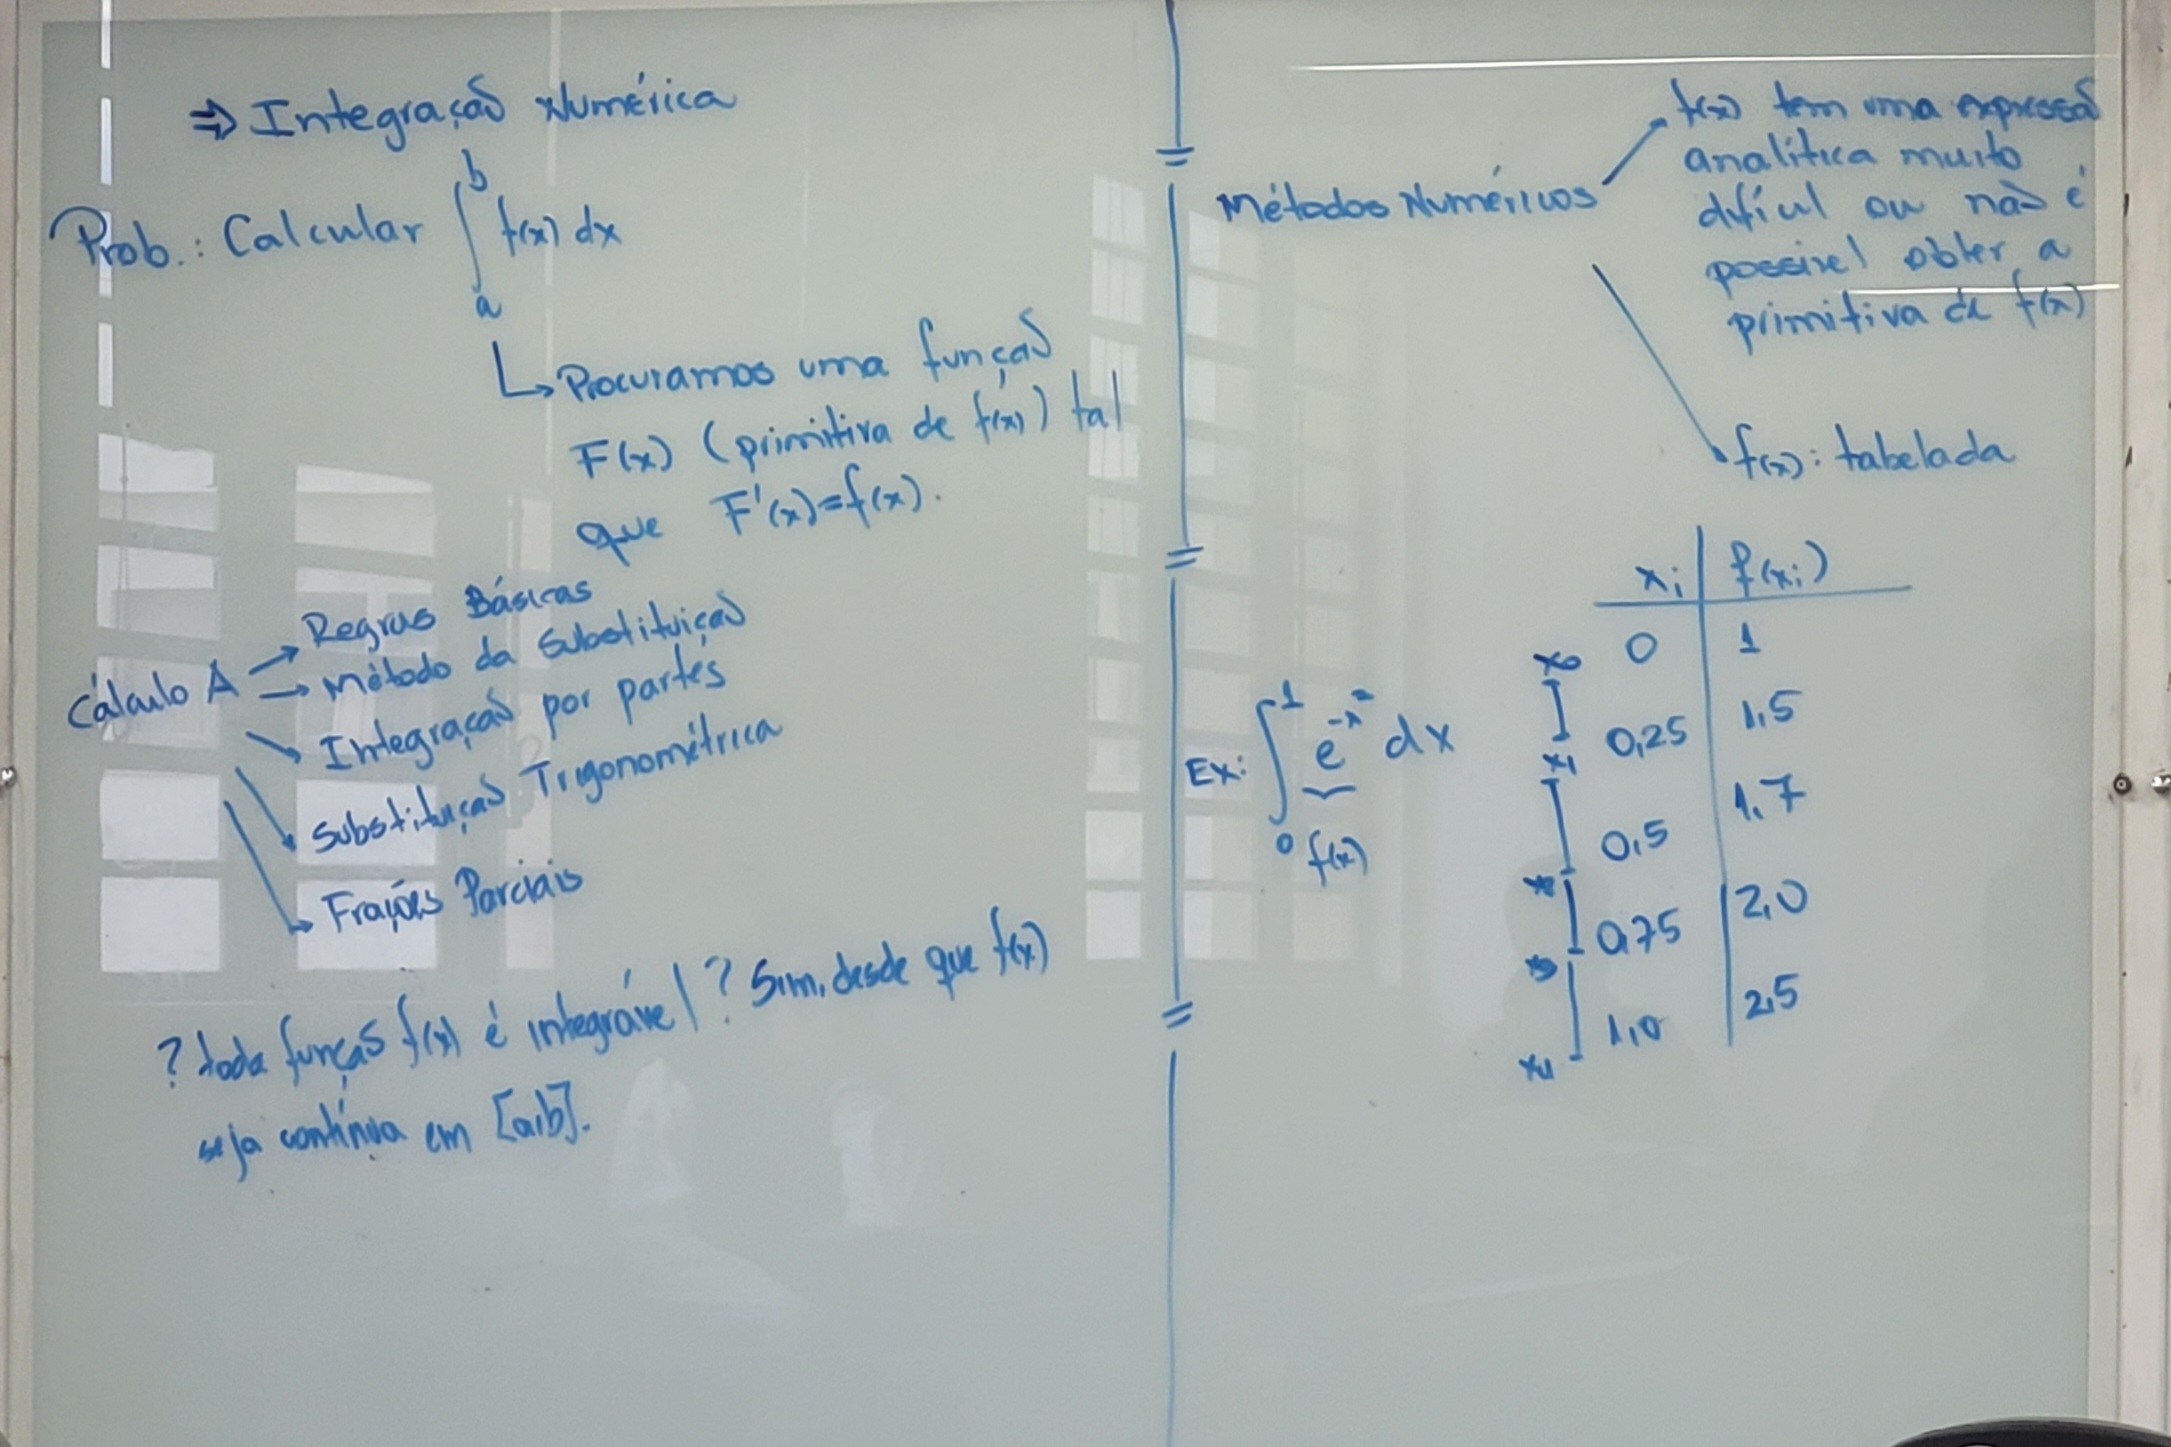 ⇒ Integração Numérica
Prob.: Calcular ∫ₐᵇ f(x) dx
↳ Procuramos uma função
F(x) (primitiva de f(x)) tal
que F'(x)=f(x).
Cálculo A
→ Regras Básicas
→ Método da Substituição
Integração por partes
Substituição Trigonométrica
Frações Parciais
? toda função f(x) é integrável? Sim, desde que f(x)
seja contínua em [a,b].
Métodos Numéricos
f(x) tem uma expressão
analítica muito
difícil ou não é
possível obter a
primitiva de f(x)
f(x): tabelada
Ex: ∫₀¹ e^{-x²} dx
f(x)
xᵢ | f(xᵢ)
x₀ 0 | 1
x₁ 0,25 | 1,5
x₂ 0,5 | 1,7
x₃ 0,75 | 2,0
x₄ 1,0 | 2,5